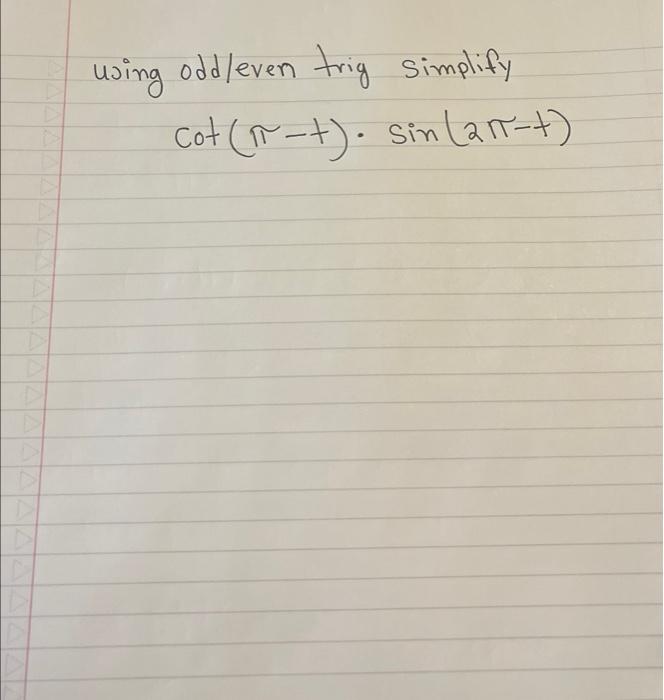 using odd/even trig simplify
cot(π-t). sin(2π-t)